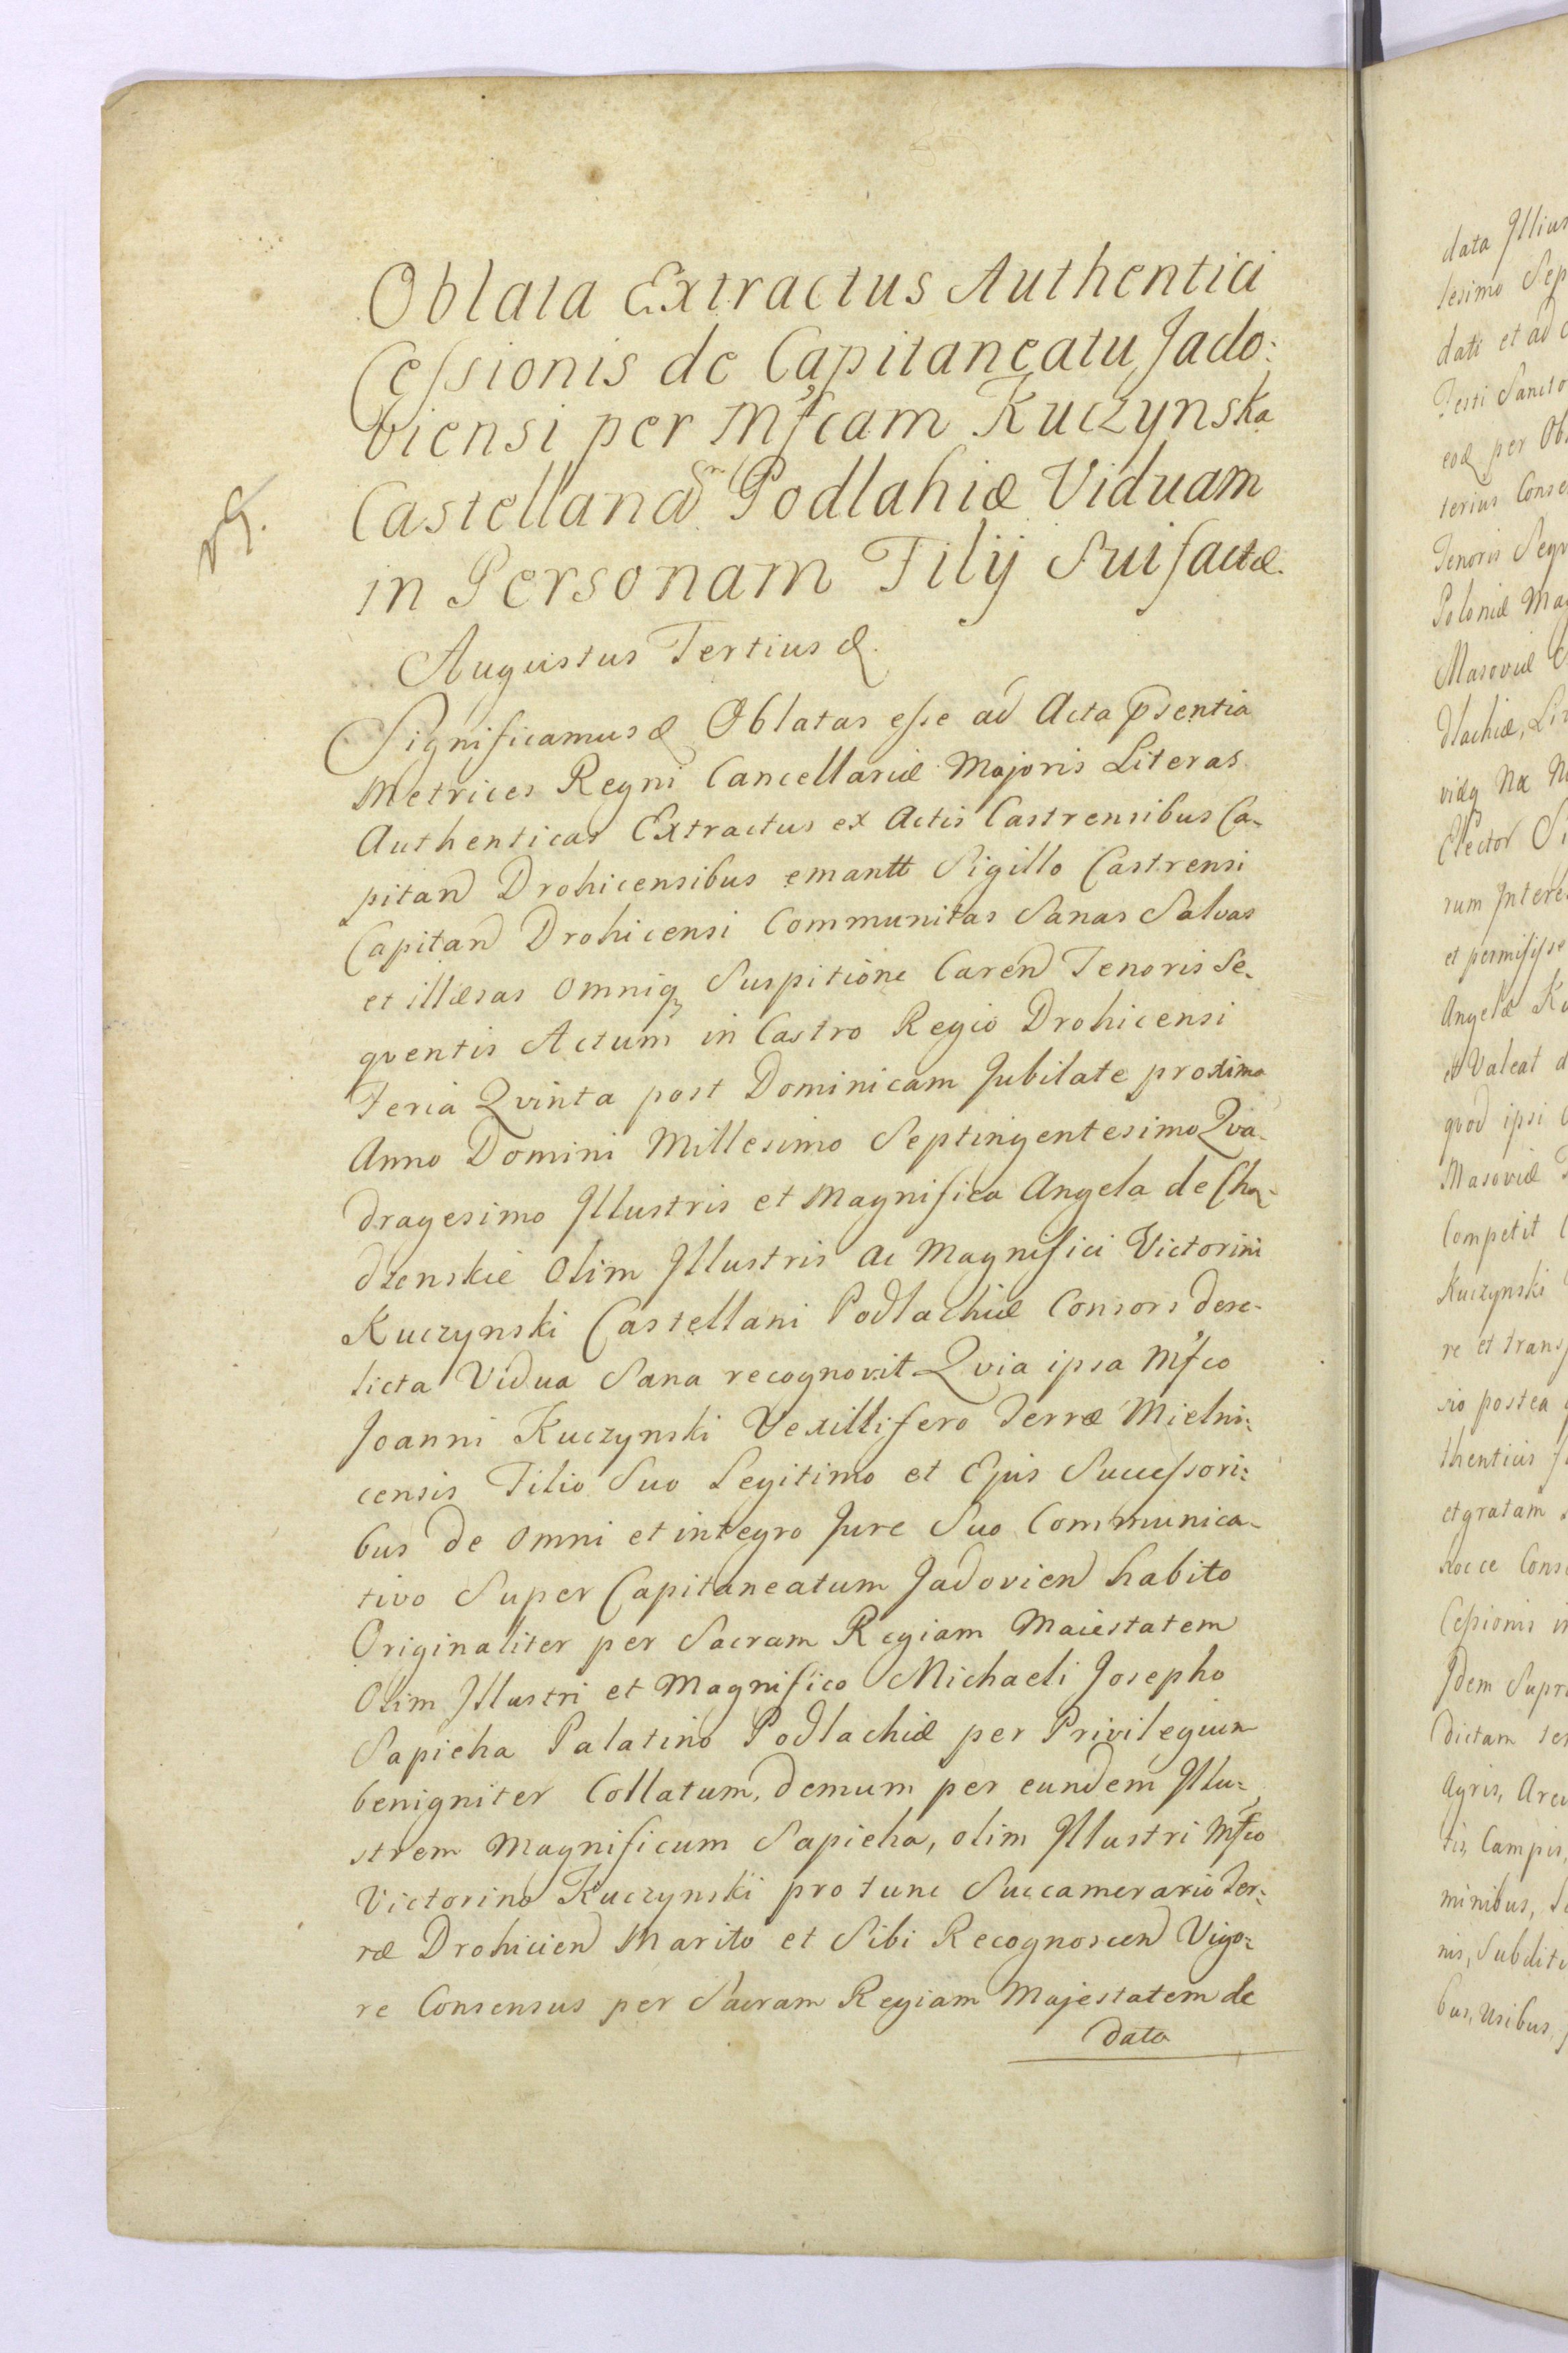 Oblata Extractus Authentici
Cessionis de Capitaneatu Jado:
viensi per Mfcam Kuczynska
Castellanam Podlahiæ Viduam
in Personam Filij Sui factæ.
Augustus Tertius &.
Significamus & Oblatas esse ad Acta psentia
Metrices Regni Cancellariæ Majoris Literas
Authenticas Extractus ex Actis Castrensibus Ca-
pitan Drohicensibus emantt Sigillo Castrensi
Capitan Drohicensi Communitas Sanas Salvas
et illæsas omniq Suspitione Caren Tenoris Se-
qventis Actum in Castro Regio Drohicensi
Feria Qvinta post Dominicam Jubilate proxima
Anno Domini Millesimo Septingentesimo Qva-
dragesimo Illustris et Magnifica Angela de Cho-
dzenskie Olim Illustris ac Magnifici Victorini
Kuczynski Castellani Podlachiæ Consors dere-
licta Vidua Sana recognovit Qvia ipsa Mfco
Joanni Kuczynski Vexillifero Terræ Mielni:
censis Filio Suo Legitimo et Ejus Successori:
bus de omni et integro Jure Suo Communica-
tivo Super Capitaneatum Jadovien habito
Originaliter per Sacram Regiam Maiestatem
Olim Illustri et Magnifico Michaeli Josepho
Sapieha Palatino Podlachiæ per Privilegium
benigniter Collatum, demum per eundem Illu:
strem Magnificum Sapieha, olim Illustri Mfco
Victorino Kuczynski pro tunc Succamerario Ter:
ræ Drohicien Marito et Sibi Recognoscen Vigo:
re Consensus per Sacram Regiam Majestatem de
data
data Illius
tesimo Sep
dati et ad
Festi Sancto
eod per Ob
terius Conse
Tenoris Seqv
Poloniæ Mag
Masoviæ
dlachiæ, Li
Elector
rum Intere
et permisisse
Angelæ Ku
et Valeat d
qvod ipsi
Masoviæ
Competit
Kuczynski
re et trans
sio postea
thenticus
et gratam
hocce Cons
Cessionis in
Idem Supr
dictam
Agris,
Campis,
minibus,
nis, Subditi
bus, Usibus,